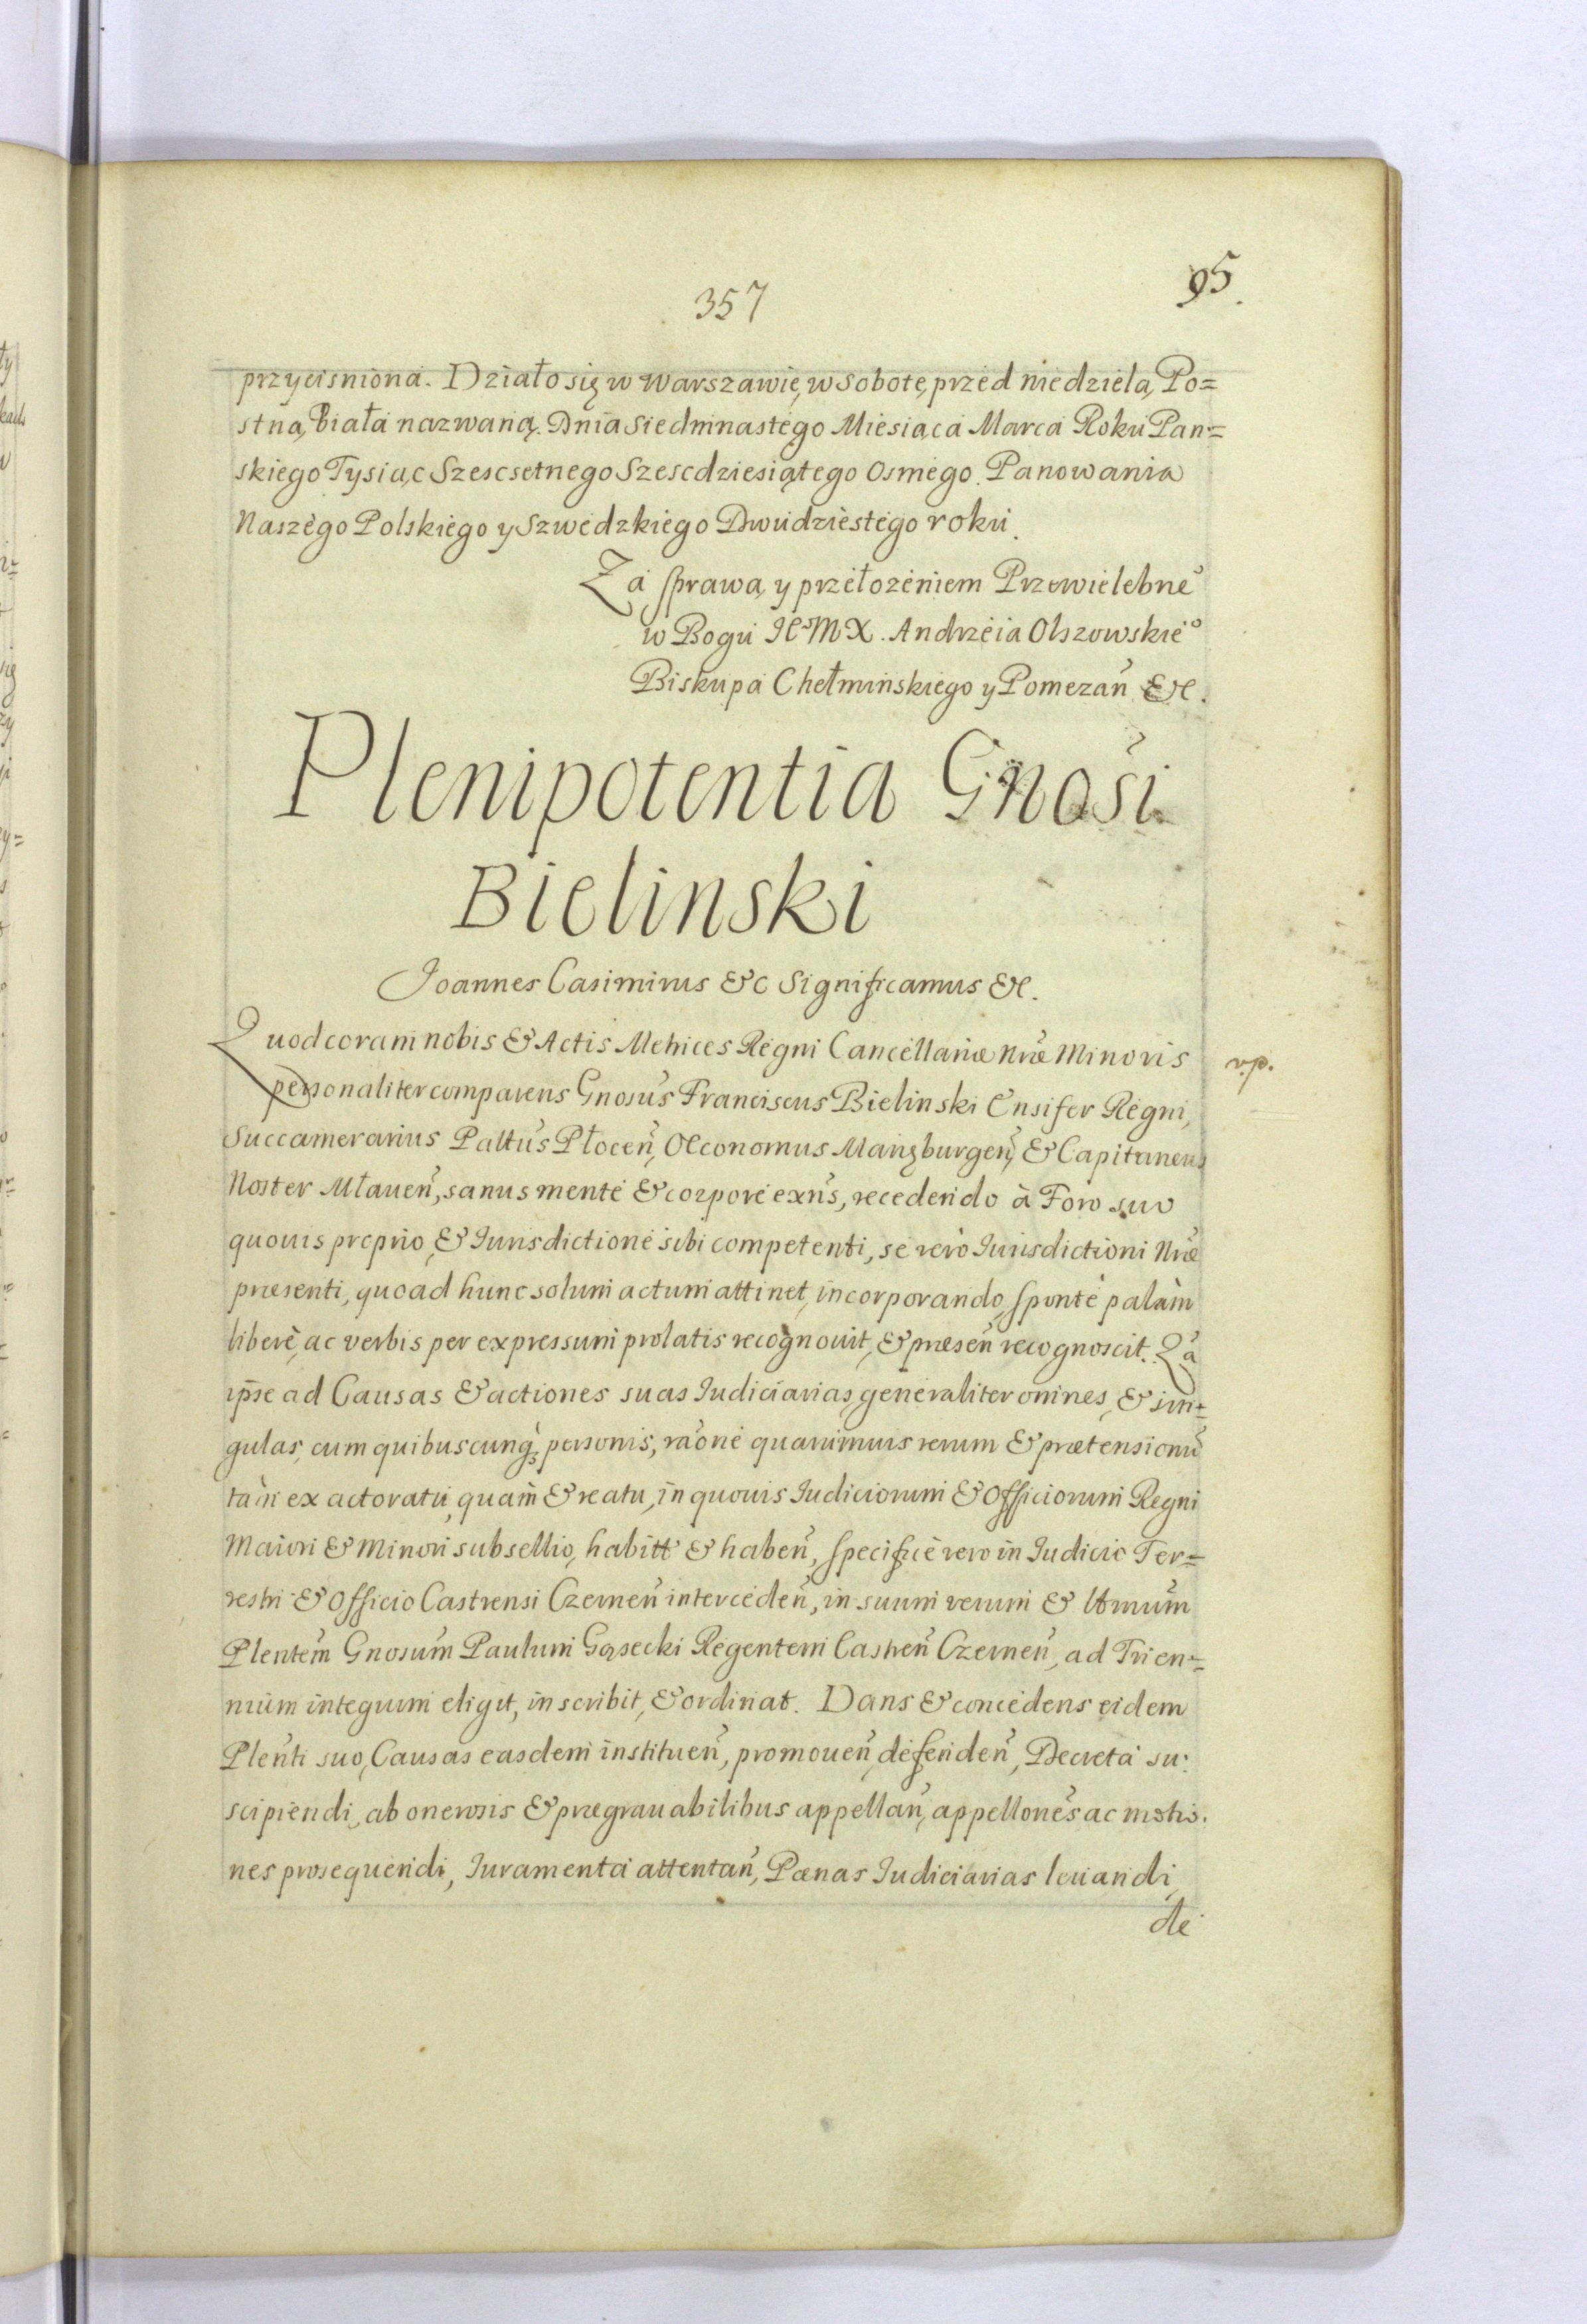 357
95.
przycisniona. Działo się w Warszawie, w Sobotę, przed niedzielą, Po=
stną, Białą nazwaną. Dnia Siedmnastego Miesiąca Marca Roku Pan=
skiego Tysiąc Szescsetnego Szescdziesiątego Osmego. Panowania
Naszego Polskiego y Szwedzkiego Dwudziestego roku.
Za sprawą y przełozeniem Przewielebne°
w Bogu JeM X. Andrzeia Olszowskie°
Biskupa Chełmińskiego y Pomezan̄ &c.
Plenipotentia Gnosi
Bielinski
Joannes Casimirus &c Significamus &c.
Quod coram nobis & Actis Metrices Regni Cancellariæ Nræ Minoris
v.p.
personaliter comparens Gnosus Franciscus Bielinski Ensifer Regni,
Succamerarius Paltus Płocen̄, Oeconomus Mariæburgen̄, & Capitaneus
Noster Młauen̄, sanus mente & corpore exn̄s, recedendo à Foro suo
quouis proprio, & Iurisdictione sibi competenti, se verò Iurisdictioni Nræ
præsenti, quoad hunc solum actum attinet, incorporando, sponte palàm
liberè, ac verbis per expressum prolatis recognouit, & præsen̄ recognoscit. Qa
ipse ad Causas & actiones suas Iudiciarias, generaliter omnes, & sin=
gulas, cum quibuscunq̀ personis, raōne quarumuis rerum & prætensionū
tàm ex actoratu, quam & reatu, in quouis Iudiciorum & Officiorum Regni
Maiori & Minori subsellio, habitt & haben̄, specificè vero in Iudicio Ter=
restri & Officio Castrensi Czernen̄ interceden̄, in suum verum & Ltmum̄
Plentem̄ Gnosum̄ Paulum Gąsecki Regentem Castren̄ Czernen̄, ad Trien=
nium integrum eligit, inscribit, & ordinat. Dans & concedens eidem
Plen̄ti suo, Causas easdem instituen̄, promouen̄, defenden̄, Decreta su:
scipiendi, ab onerosis & prægrauabilibus appellan̄, appellones̄ ac motio.
nes prosequendi, Iuramenta attentan̄, Pænas Iudiciarias leuandi,
de